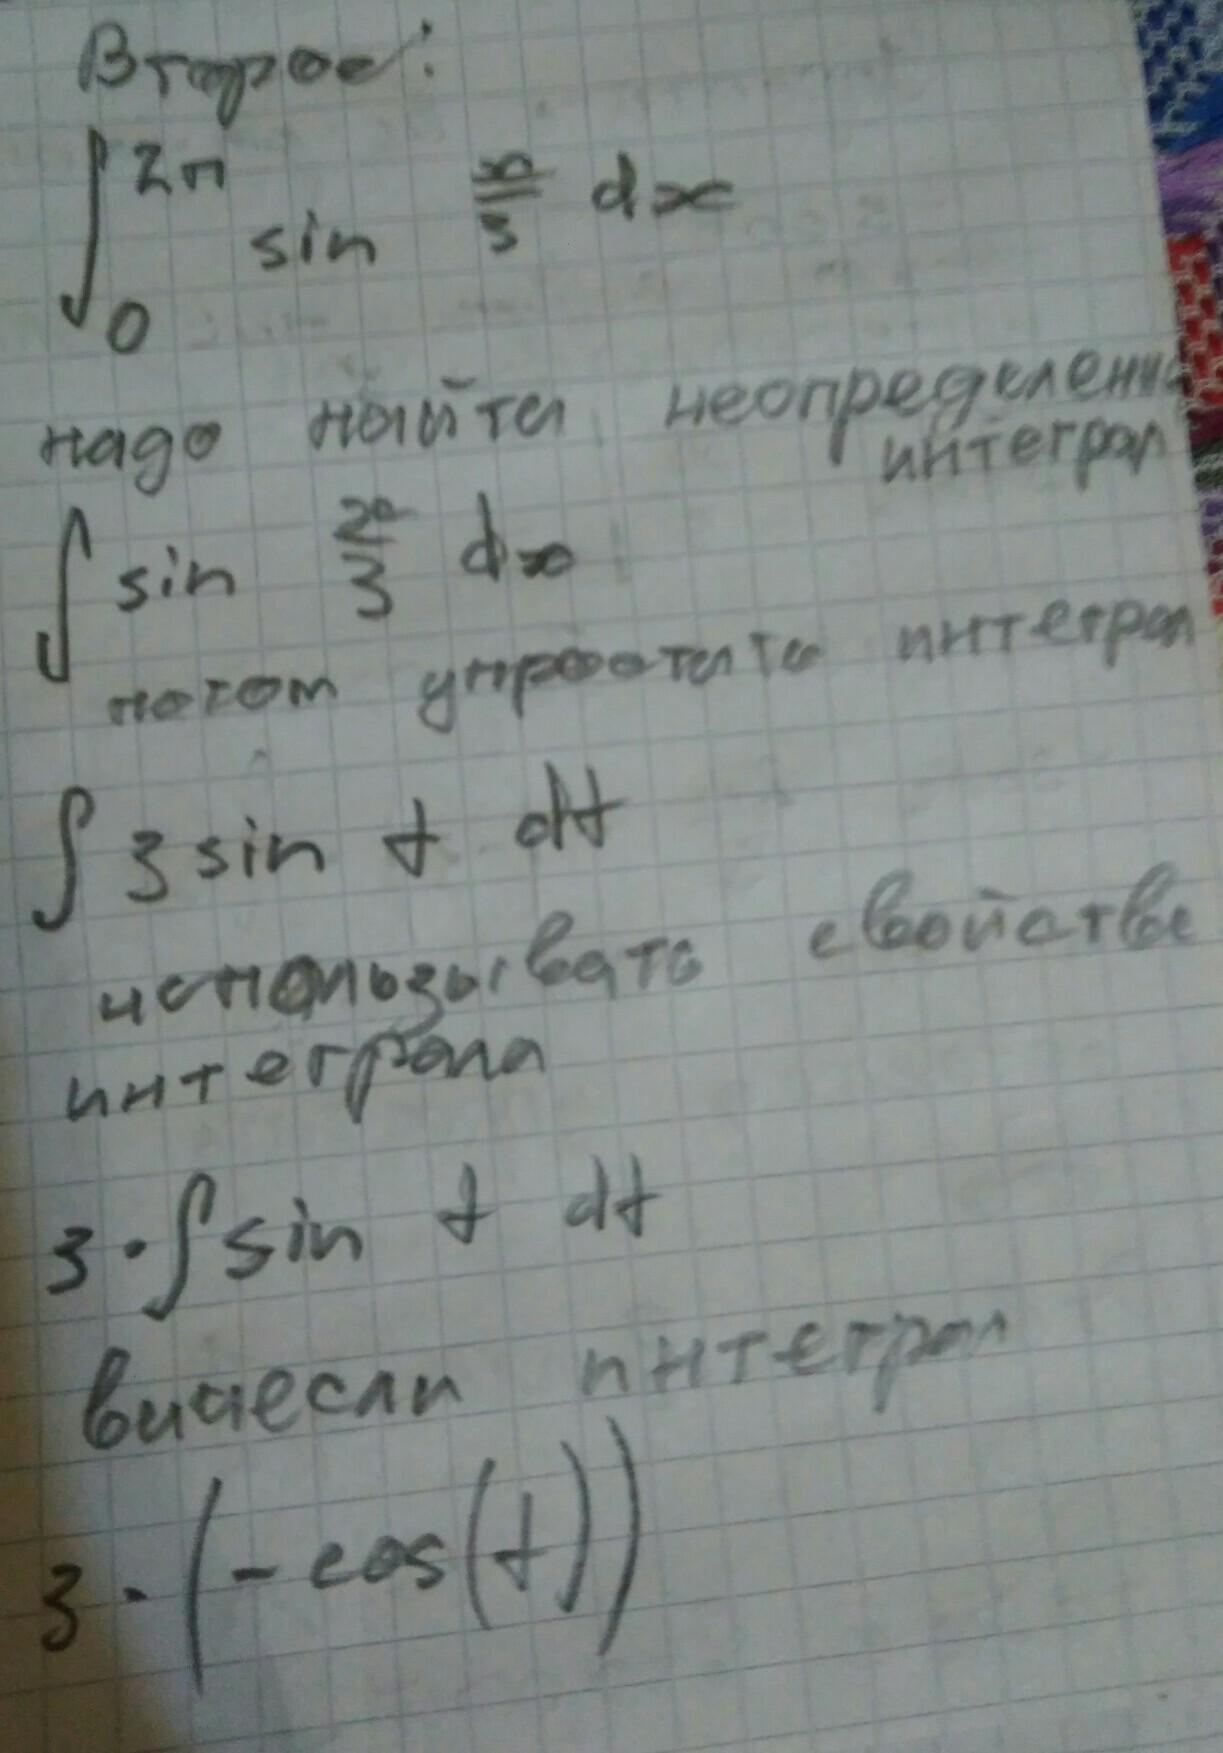 Второе:
∫₀²ⁿ sin x/3 dx
надо найти неопределенны
интеграл
∫ sin x/3 dx
потом упростить интеграл
∫ 3 sin t dt
использывать свойстве
интеграла
3 · ∫ sin t dt
вычесли интеграл
3 · (- cos(t))